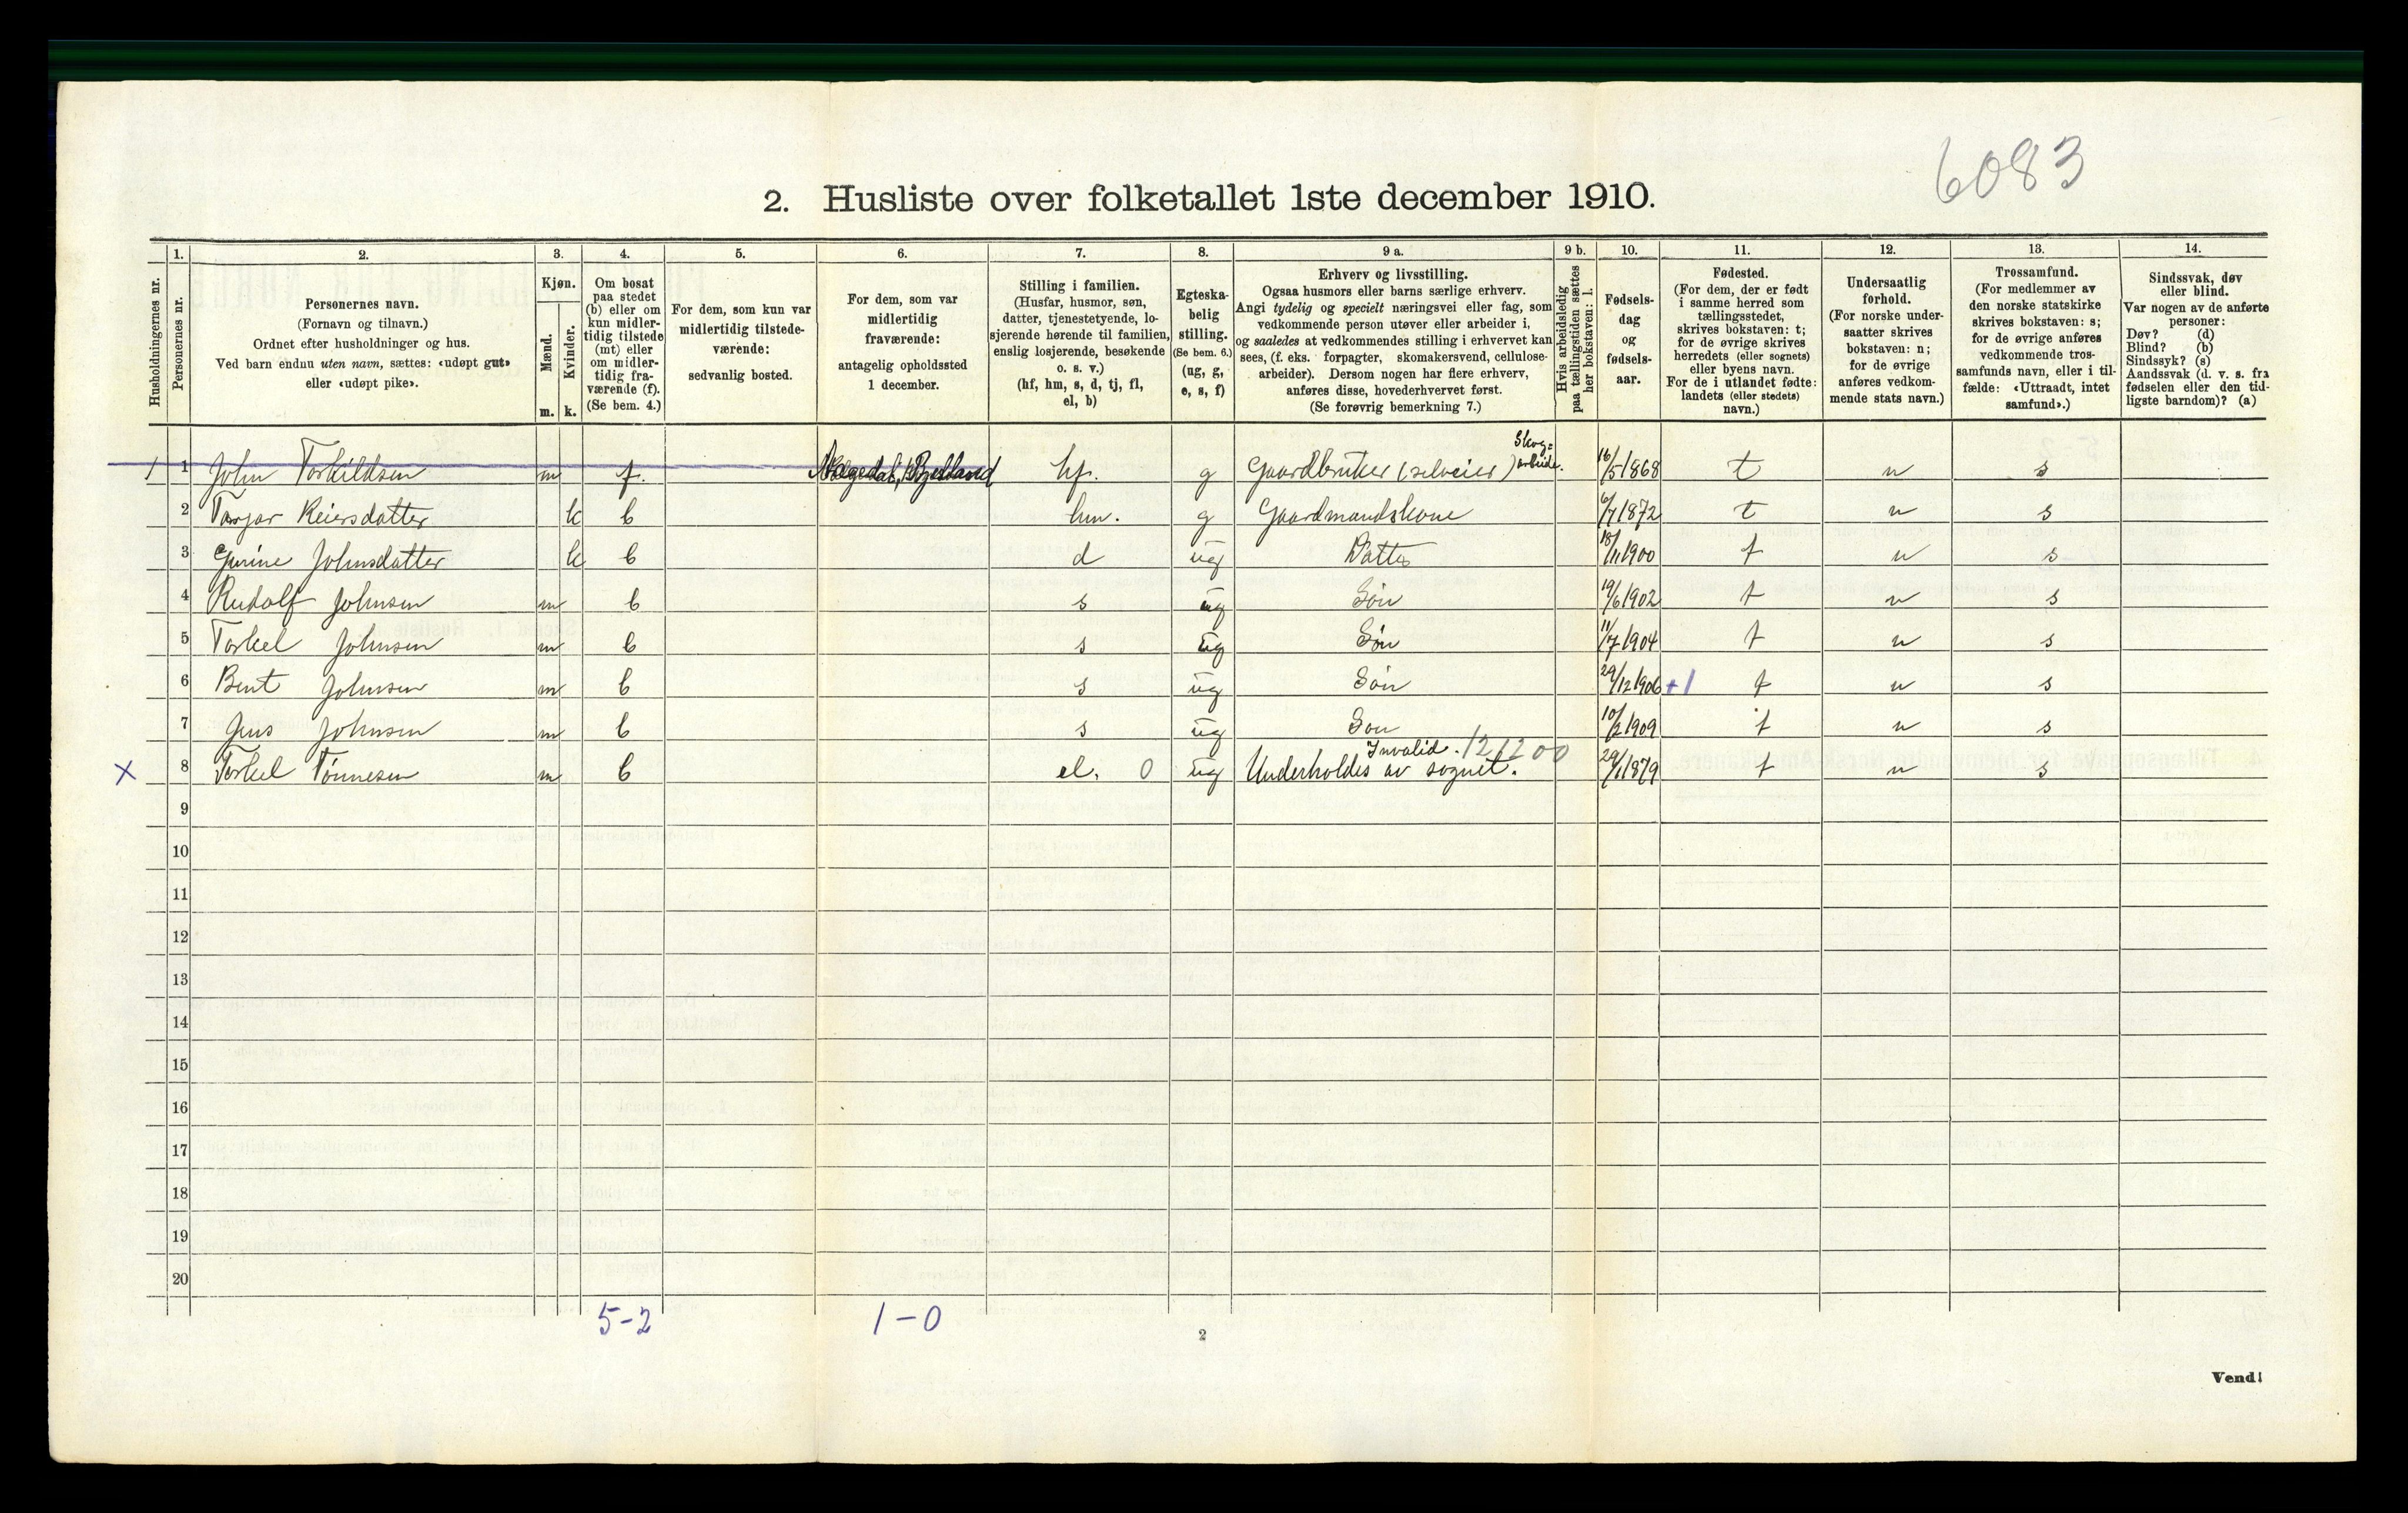 6083
2. Husliste over folketallet 1ste december 1910.
1. 2. 3. 4. 5. 6. 7. 8. 9 a. 9 b. 10. 11. 12. 13. 14.
Husholdningernes nr.
Personernes nr.
Personernes navn.
(Fornavn og tilnavn.)
Ordnet efter husholdninger og hus.
Ved barn endnu uten navn, sættes: «udøpt gut»
eller «udøpt pike».
Kjøn.
Mænd.
Kvinder.
m. k.
Om bosat
paa stedet
(b) eller om
kun midler-
tidig tilstede
(mt) eller
om midler-
tidig fra-
værende (f).
(Se bem. 4.)
For dem, som kun var
midlertidig tilstede-
værende:
sedvanlig bosted.
For dem, som var
midlertidig
fraværende:
antagelig opholdssted
1 december.
Stilling i familien.
(Husfar, husmor, søn,
datter, tjenestetyende, lo-
sjerende hørende til familien,
enslig losjerende, besøkende
o. s. v.)
(hf, hm, s, d, tj, fl,
el, b)
Egteska-
belig
stilling.
(Se bem. 6.)
(ug, g,
e, s, f)
Erhverv og livsstilling.
Ogsaa husmors eller barns særlige erhverv.
Angi tydelig og specielt næringsvei eller fag, som
vedkommende person utøver eller arbeider i,
og saaledes at vedkommendes stilling i erhvervet kan
sees, (f. eks. forpagter, skomakersvend, cellulose-
arbeider). Dersom nogen har flere erhverv,
anføres disse, hovederhvervet først.
(Se forøvrig bemerkning 7.)
Hvis arbeidsledig
paa tællingstiden sættes
her bokstaven: l.
Fødsels-
dag
og
fødsels-
aar.
Fødested.
(For dem, der er født
i samme herred som
tællingsstedet,
skrives bokstaven: t;
for de øvrige skrives
herredets (eller sognets)
eller byens navn.
For de i utlandet fødte:
landets (eller stedets)
navn.)
Undersaatlig
forhold.
(For norske under-
saatter skrives
bokstaven: n;
for de øvrige
anføres vedkom-
mende stats navn.)
Trossamfund.
(For medlemmer av
den norske statskirke
skrives bokstaven: s;
for de øvrige anføres
vedkommende tros-
samfunds navn, eller i til-
fælde: «Uttraadt, intet
samfund».)
Sindssvak, døv
eller blind.
Var nogen av de anførte
personer:
Døv? (d)
Blind? (b)
Sindssyk? (s)
Aandssvak (d. v. s. fra
fødselen eller den tid-
ligste barndom)? (a)
1 1 John Torkildsen m f. hf. g Gaardbruker (selveier) Skog= arbeide. 16/5 1868 t n s
2 Reiersdatter k b hm. g Gaardmandskone 1872 t n s
3 Johnsdatter k b d ug Datter 18/11 1900 t n s
4 Rudolf Johnsen m b s ug Søn 19/6 1902 t n s
5 Torkel Johnsen m b s ug Søn 11/7 1904 t n s
6 Bent Johnsen m b s ug Søn 29/12 1906 +1 t n s
7 Jens Johnsen m b s ug Søn 10/2 1909 t n s
Invalid. 121200
X 8 Torkel Tønnesen m b el. 0 ug Underholdes av sognet. 29/1 1879 t n s
9
10
11
12
13
14
15
16
17
18
19
20
5-2 1-0
2
Vend!